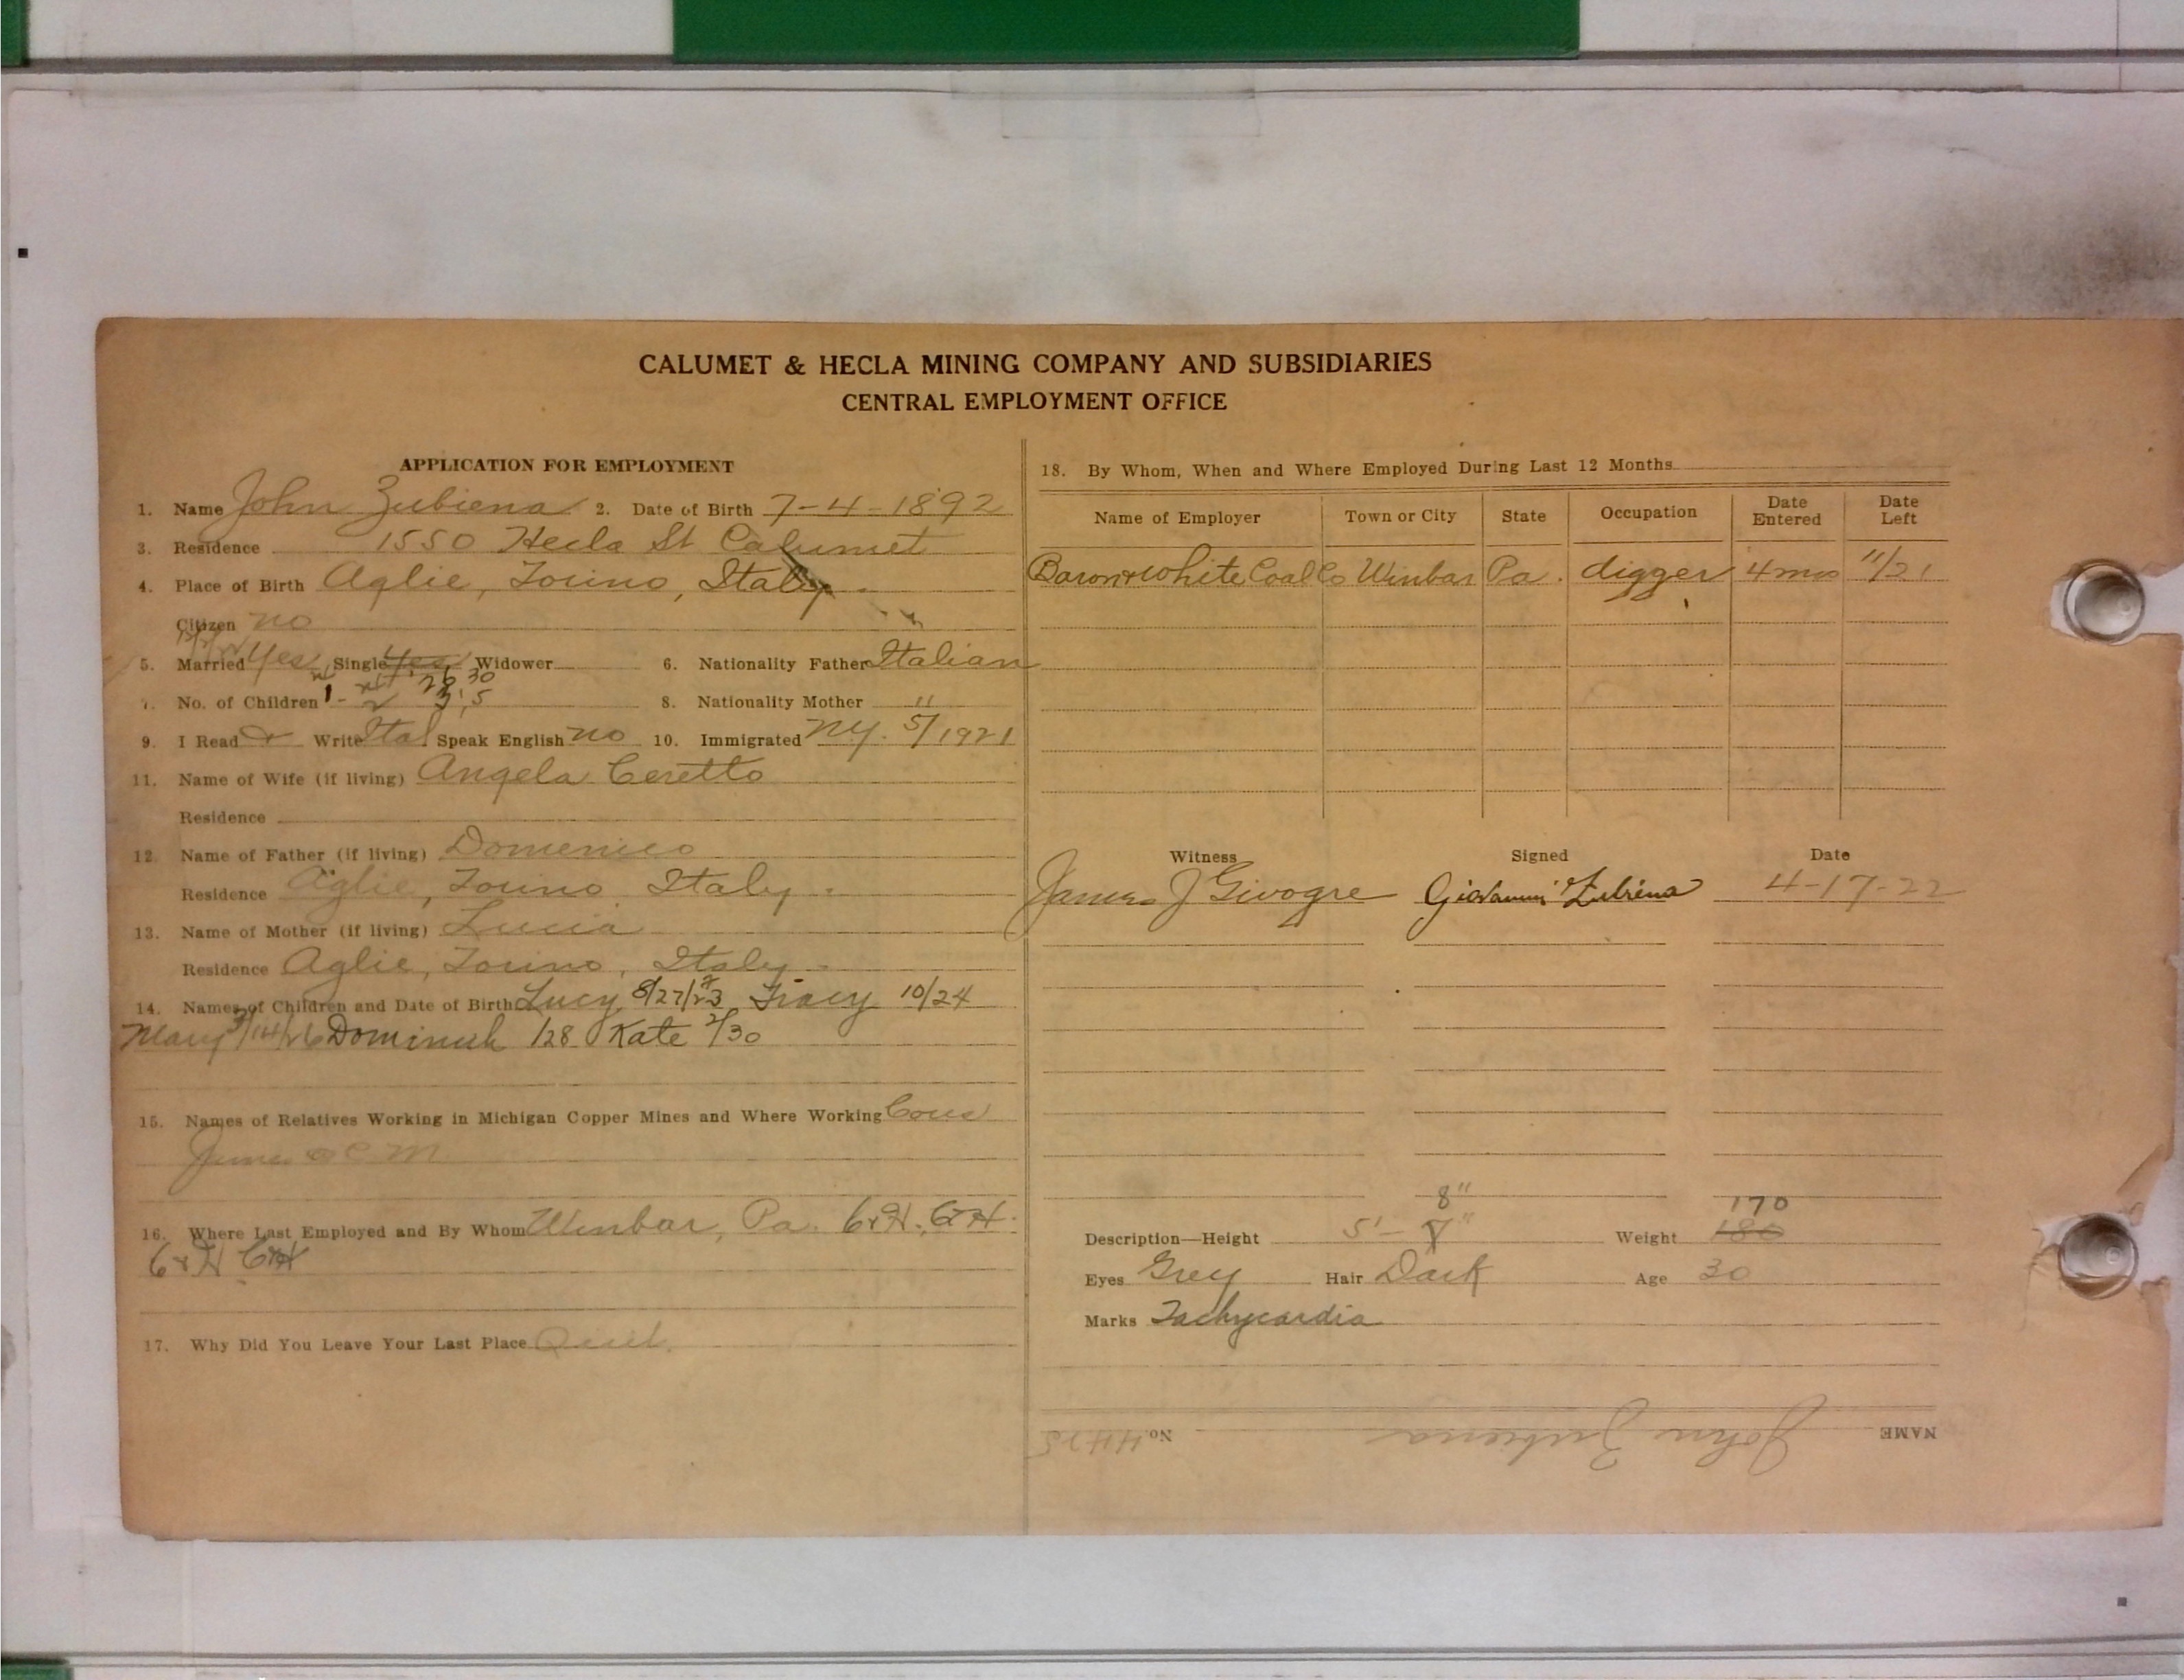 CALUMET & HECLA MINING COMPANY AND SUBSIDIARIES
CENTRAL EMPLOYMENT OFFICE
APPLICATION FOR EMPLOYMENT
1. Name John Zubiena 2. Date of Birth 7-4-1892
3. Residence 1550 Hecla St Calumet
4. Place of Birth Aglie, Torino, Italy
Citizen no
5. Married Yes Single Yes Widower 6. Nationality Father Italian
7. No. of Children 1 - 2 3 5 8. Nationality Mother "
9. I Read & Write Ital Speak English no 10. Immigrated NY. 5/1921
11. Name of Wife (if living) Angela Ceretto
Residence
12. Name of Father (if living) Domenico
Residence Aglie, Torino Italy.
13. Name of Mother (if living) Lucia
Residence Aglie, Torino, Italy
14. Names of Children and Date of Birth Lucy 8/27/23 Tracy 10/24
Mary 3/14/26 Dominick /28 Kate 2/30
15. Names of Relatives Working in Michigan Copper Mines and Where Working Cous
James
16. Where Last Employed and By Whom Winbar, Pa. C&H. C&H.
C&H C&H
17. Why Did You Leave Your Last Place Quit.
18. By Whom, When and Where Employed During Last 12 Months
Name of Employer Town or City State Occupation Date Entered Date Left
Baron & White Coal Co Winbar Pa. digger 4 mos 11/21
Witness Signed Date
James J Givogre Giovanni Zubiena 4-17-22
8" 170
Description—Height 5'-7" Weight 180
Eyes Grey Hair Dark Age 30
Marks Tachycardia
NAME John Zubiena No. 4425